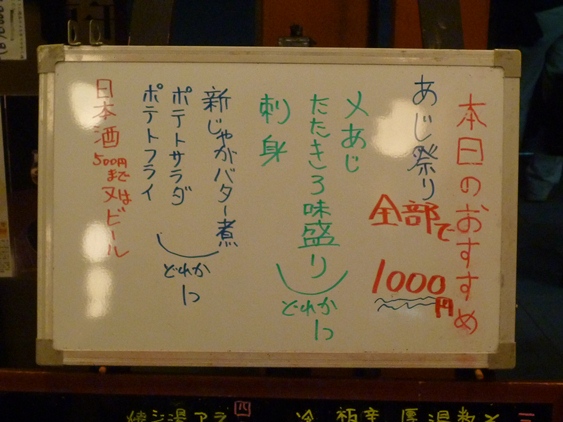 本日のおすすめ
あじ祭り
全部で
1000円
〆あじ
たたき3味盛り
刺身
どれか
1つ
新じゃがバター煮
ポテトサラダ
ポテトフライ
どれか
1つ
日本酒
500円まで
又は
ビール